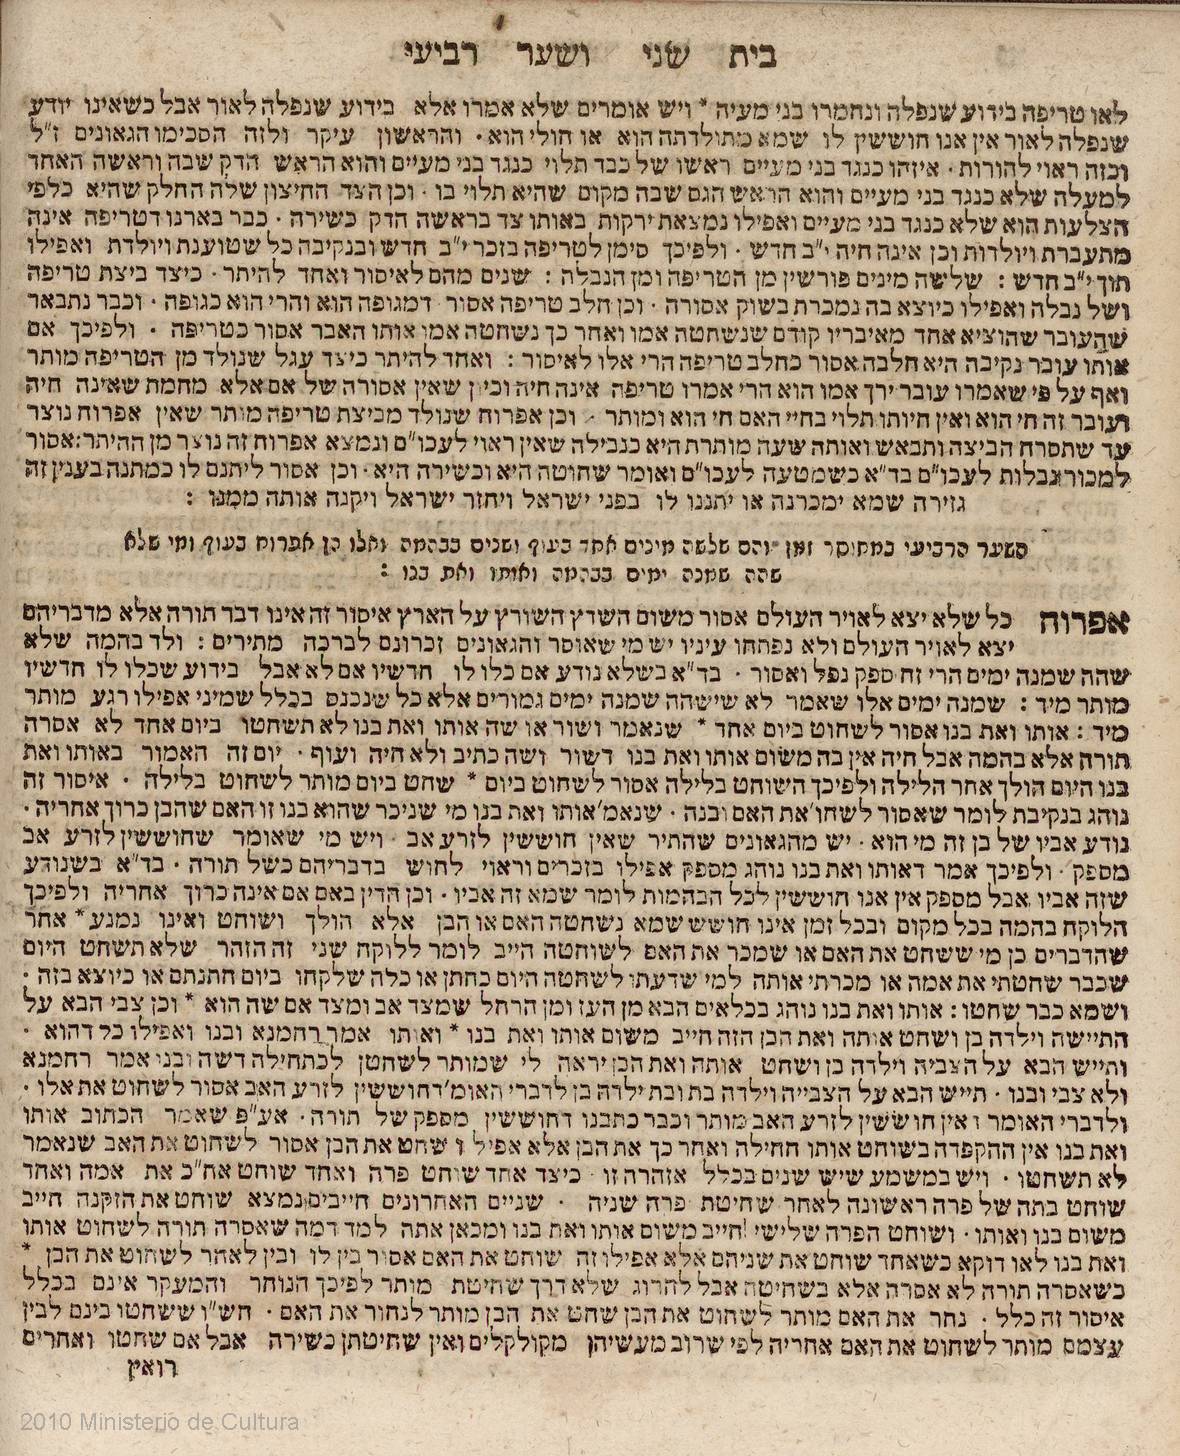 בית שני ושער רביעי
לאו טריפה בידוע שנפלה ונחמרו בני מעיה * ויש אומרים שלא אמרו אלא בידוע שנפלה לאור אבל כשאינו יודע
שנפלה לאור אין אנו חוששין לו שמא מתולדתה הוא או חולי הוא · והראשון עיקר ולזה הסכימו הגאונים ז"ל
וכזה ראוי להורות · איזהו כנגד בני מעיים ראשו של כבד תלוי כנגד בני מעיים והוא הראש הדק שבה וראשה האחד
למעלה שלא כנגד בני מעיים והוא הראש הגס שבה מקום שהיא תלוי בו · וכן הצד החיצון שלה החלק שהיא כלפי
הצלעות הוא שלא כנגד בני מעיים ואפילו נמצאת ירקות באותו צד בראשה הדק כשירה · כבר בארנו דטריפה אינה
מתעברת ויולדות וכן אינה חיה י"ב חדש · ולפיכך סימן לטריפה בזכר י"ב חדש ובנקיבה כל שטוענת ויולדת ואפילו
תוך י"ב חדש : שלישה מינים פורשין מן הטריפה ומן הנבלה : שנים מהם לאיסור ואחד להיתר · כיצד ביצת טריפה
ושל נבלה ואפילו כיוצא בה נמכרת בשוק אסורה · וכן חלב טריפה אסור דמגופה הוא והרי הוא כגופה · וכבר נתבאר
שהעובר שהוציא אחד מאיבריו קודם שנשחטה אמו ואחר כך נשחטה אמו אותו האבר אסור כטריפה · ולפיכך אם
אותו עובר נקיבה היא חלבה אסור כחלב טריפה הרי אלו לאיסור : ואחד להיתר כיצד עגל שנולד מן הטריפה מותר
ואף על פי שאמרו עובר ירך אמו הוא הרי אמרו טריפה אינה חיה וכיון שאין אסורה של אם אלא מחמת שאינה חיה
ועובר זה חי הוא ואין חיותו תלוי בחיי האם חי הוא ומותר · וכן אפרוח שנולד מביצת טריפה מותר שאין אפרוח נוצר
עד שתסרח הביצה ותבאש ואותה שעה מותרת היא כנבילה שאין ראוי לעכו"ם ונמצא אפרוח זה נוצר מן ההיתר: אסור
למכור נבלות לעכו"ם בד"א כשמטעה לעכו"ם ואומר שחוטה היא וכשירה היא · וכן אסור ליתנם לו כמתנה בענין זה
גזירה שמא ימכרנה או יתננו לו בפני ישראל ויחזר ישראל ויקנה אותה ממנו :
השער הרביעי במחוסר זמן והם שלשה מינים אחד בעוף ושנים בבהמה ואלו הן אפרוח בעוף ומי שלא
שהה שמנה ימים בבהמה ואותו ואת בנו :
אפרוח כל שלא יצא לאויר העולם אסור משום השרץ השורץ על הארץ איסור זה אינו דבר תורה אלא מדבריהם
יצא לאויר העולם ולא נפתחו עיניו יש מי שאוסר והגאונים זכרונם לברכה מתירים : ולד בהמה שלא
שהה שמנה ימים הרי זה ספק נפל ואסור · בד"א בשלא נודע אם כלו לו חדשיו אם לא אבל בידוע שכלו לו חדשיו
מותר מיד : שמנה ימים אלו שאמר לא שישהה שמנה ימים גמורים אלא כל שנכנס בכלל שמיני אפילו רגע מותר
מיד : אותו ואת בנו אסור לשחוט ביום אחד * שנאמר ושור או שה אותו ואת בנו לא תשחטו ביום אחד לא אסרה
תורה אלא בהמה אבל חיה אין בה משום אותו ואת בנו דשור ושה כתיב ולא חיה ועוף · יום זה האמור באותו ואת
בנו היום הולך אחר הלילה ולפיכך השוחט בלילה אסור לשחוט ביום * שחט ביום מותר לשחוט בלילה · איסור זה
נוהג בנקיבת לומר שאסור לשחו' את האם ובנה · שנאמ' אותו ואת בנו מי שניכר שהוא בנו זו האם שהבן כרוך אחריה ·
נודע אביו של בן זה מי הוא · יש מהגאונים שהתיר שאין חוששין לזרע אב · ויש מי שאומר שחוששין לזרע אב
מספק · ולפיכך אמר דאותו ואת בנו נוהג מספק אפילו בזכרים וראוי לחוש בדבריהם כשל תורה · בד"א בשנודע
שזה אביו אבל מספק אין אנו חוששין לכל הבהמות לומר שמא זה אביו · וכן הדין באם אם אינה כרוך אחריה ולפיכך
הלוקח בהמה בכל מקום ובכל זמן אינו חושש שמא נשחטה האם או הבן אלא הולך ושוחט ואינו נמנע * אחר
שהדברים כן מי ששחט את האם או שמכר את האם לשוחטה חייב לומר ללוקח שני זה הזהר שלא תשחט היום
שכבר שחטתי את אמה או מכרתי אותה למי שדעתו לשחטה היום כחתן או כלה שלקחו ביום חתנתם או כיוצא בזה ·
ושמא כבר שחטו : אותו ואת בנו נוהג בכלאים הבא מן העז ומן הרחל שמצד אב ומצד אם שה הוא * וכן צבי הבא על
התיישה וילדה בן ושחט אותה ואת הבן הזה חייב משום אותו ואת בנו * ואותו אמר רחמנא ובנו ואפילו כל דהוא ·
ותייש הבא על הצביה וילדה בן ושחט אותה ואת הבן יראה לי שמותר לשחטן לכתחילה דשה ובנו אמר רחמנא
ולא צבי ובנו · תייש הבא על הצבייה וילדה בת ובת ילדה בן לדברי האומ' דחוששין לזרע האב אסור לשחוט את אלו ·
ולדברי האומר ואין חוששין לזרע האב מותר וכבר כתבנו דחוששין מספק של תורה · אע"פ שאמר הכתוב אותו
ואת בנו אין ההקפדה בשוחט אותו תחילה ואחר כך את הבן אלא אפילו שחט את הבן אסור לשחוט את האב שנאמר
לא תשחטו · ויש במשמע שיש שנים בכלל אזהרה זו · כיצד אחד שוחט פרה ואחד שוחט אח"כ את אמה ואחד
שוחט בתה של פרה ראשונה לאחר שחיטת פרה שניה · שניים האחרונים חייבים נמצא שוחט את הזקנה חייב
משום בנו ואותו · ושוחט הפרה שלישי חייב משום אותו ואת בנו ומכאן אתה למד דמה שאסרה תורה לשחוט אותו
ואת בנו לאו דוקא כשאחד שוחט את שניהם אלא אפילו זה שוחט את האם אסור בין לו ובין לאחר לשחוט את הבן *
כשאסרה תורה לא אסרה אלא בשחיטה אבל להרוג שלא דרך שחיטת מותר לפיכך הנוחר והמעקר אינם בכלל
איסור זה כלל · נחר את האם מותר לשחוט את הבן שחט את הבן מותר לנחור את האם · חש"ו ששחטו בינם לבין
עצמם מותר לשחוט את האם אחריה לפי שרוב מעשיהן מקולקלים ואין שחיטתן כשירה אבל אם שחטו ואחרים
רואין
2010 Ministerio de Cultura